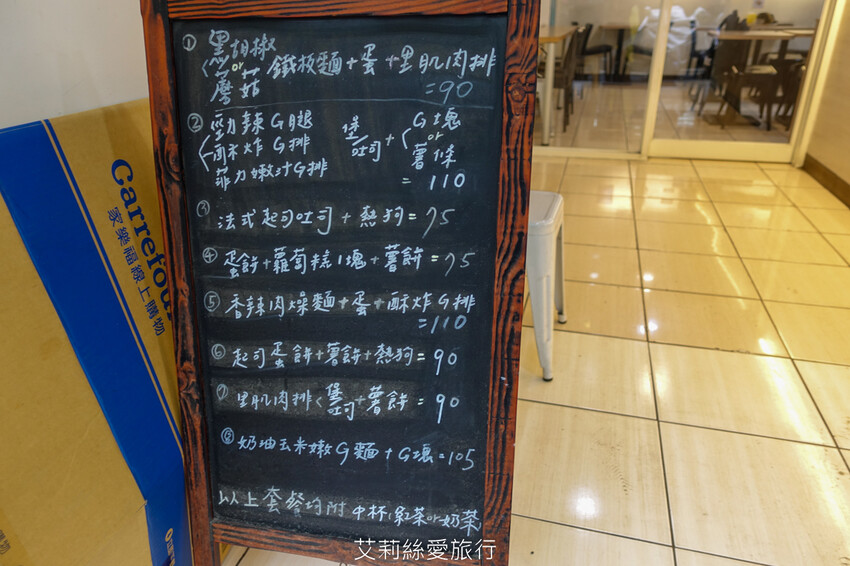 ① 黑胡椒
or 鐵板麵+蛋+里肌肉排
蘑菇
=90
② 勁辣G腿
酥炸G排
菲力嫩汁G排
堡/吐司 + G塊
or
薯條
= 110
③ 法式起司吐司 + 熱狗 = 75
④ 蛋餅+蘿蔔糕1塊+薯餅=75
⑤ 香辣肉燥麵+蛋+酥炸G排
=110
⑥ 起司蛋餅+薯餅+熱狗=90
⑦ 里肌肉排 堡/吐司 + 薯餅 = 90
⑧ 奶油玉米嫩G麵+G塊=105
以上套餐均附 中杯紅茶or奶茶
Carrefour
家樂福線上購物
艾莉絲愛旅行